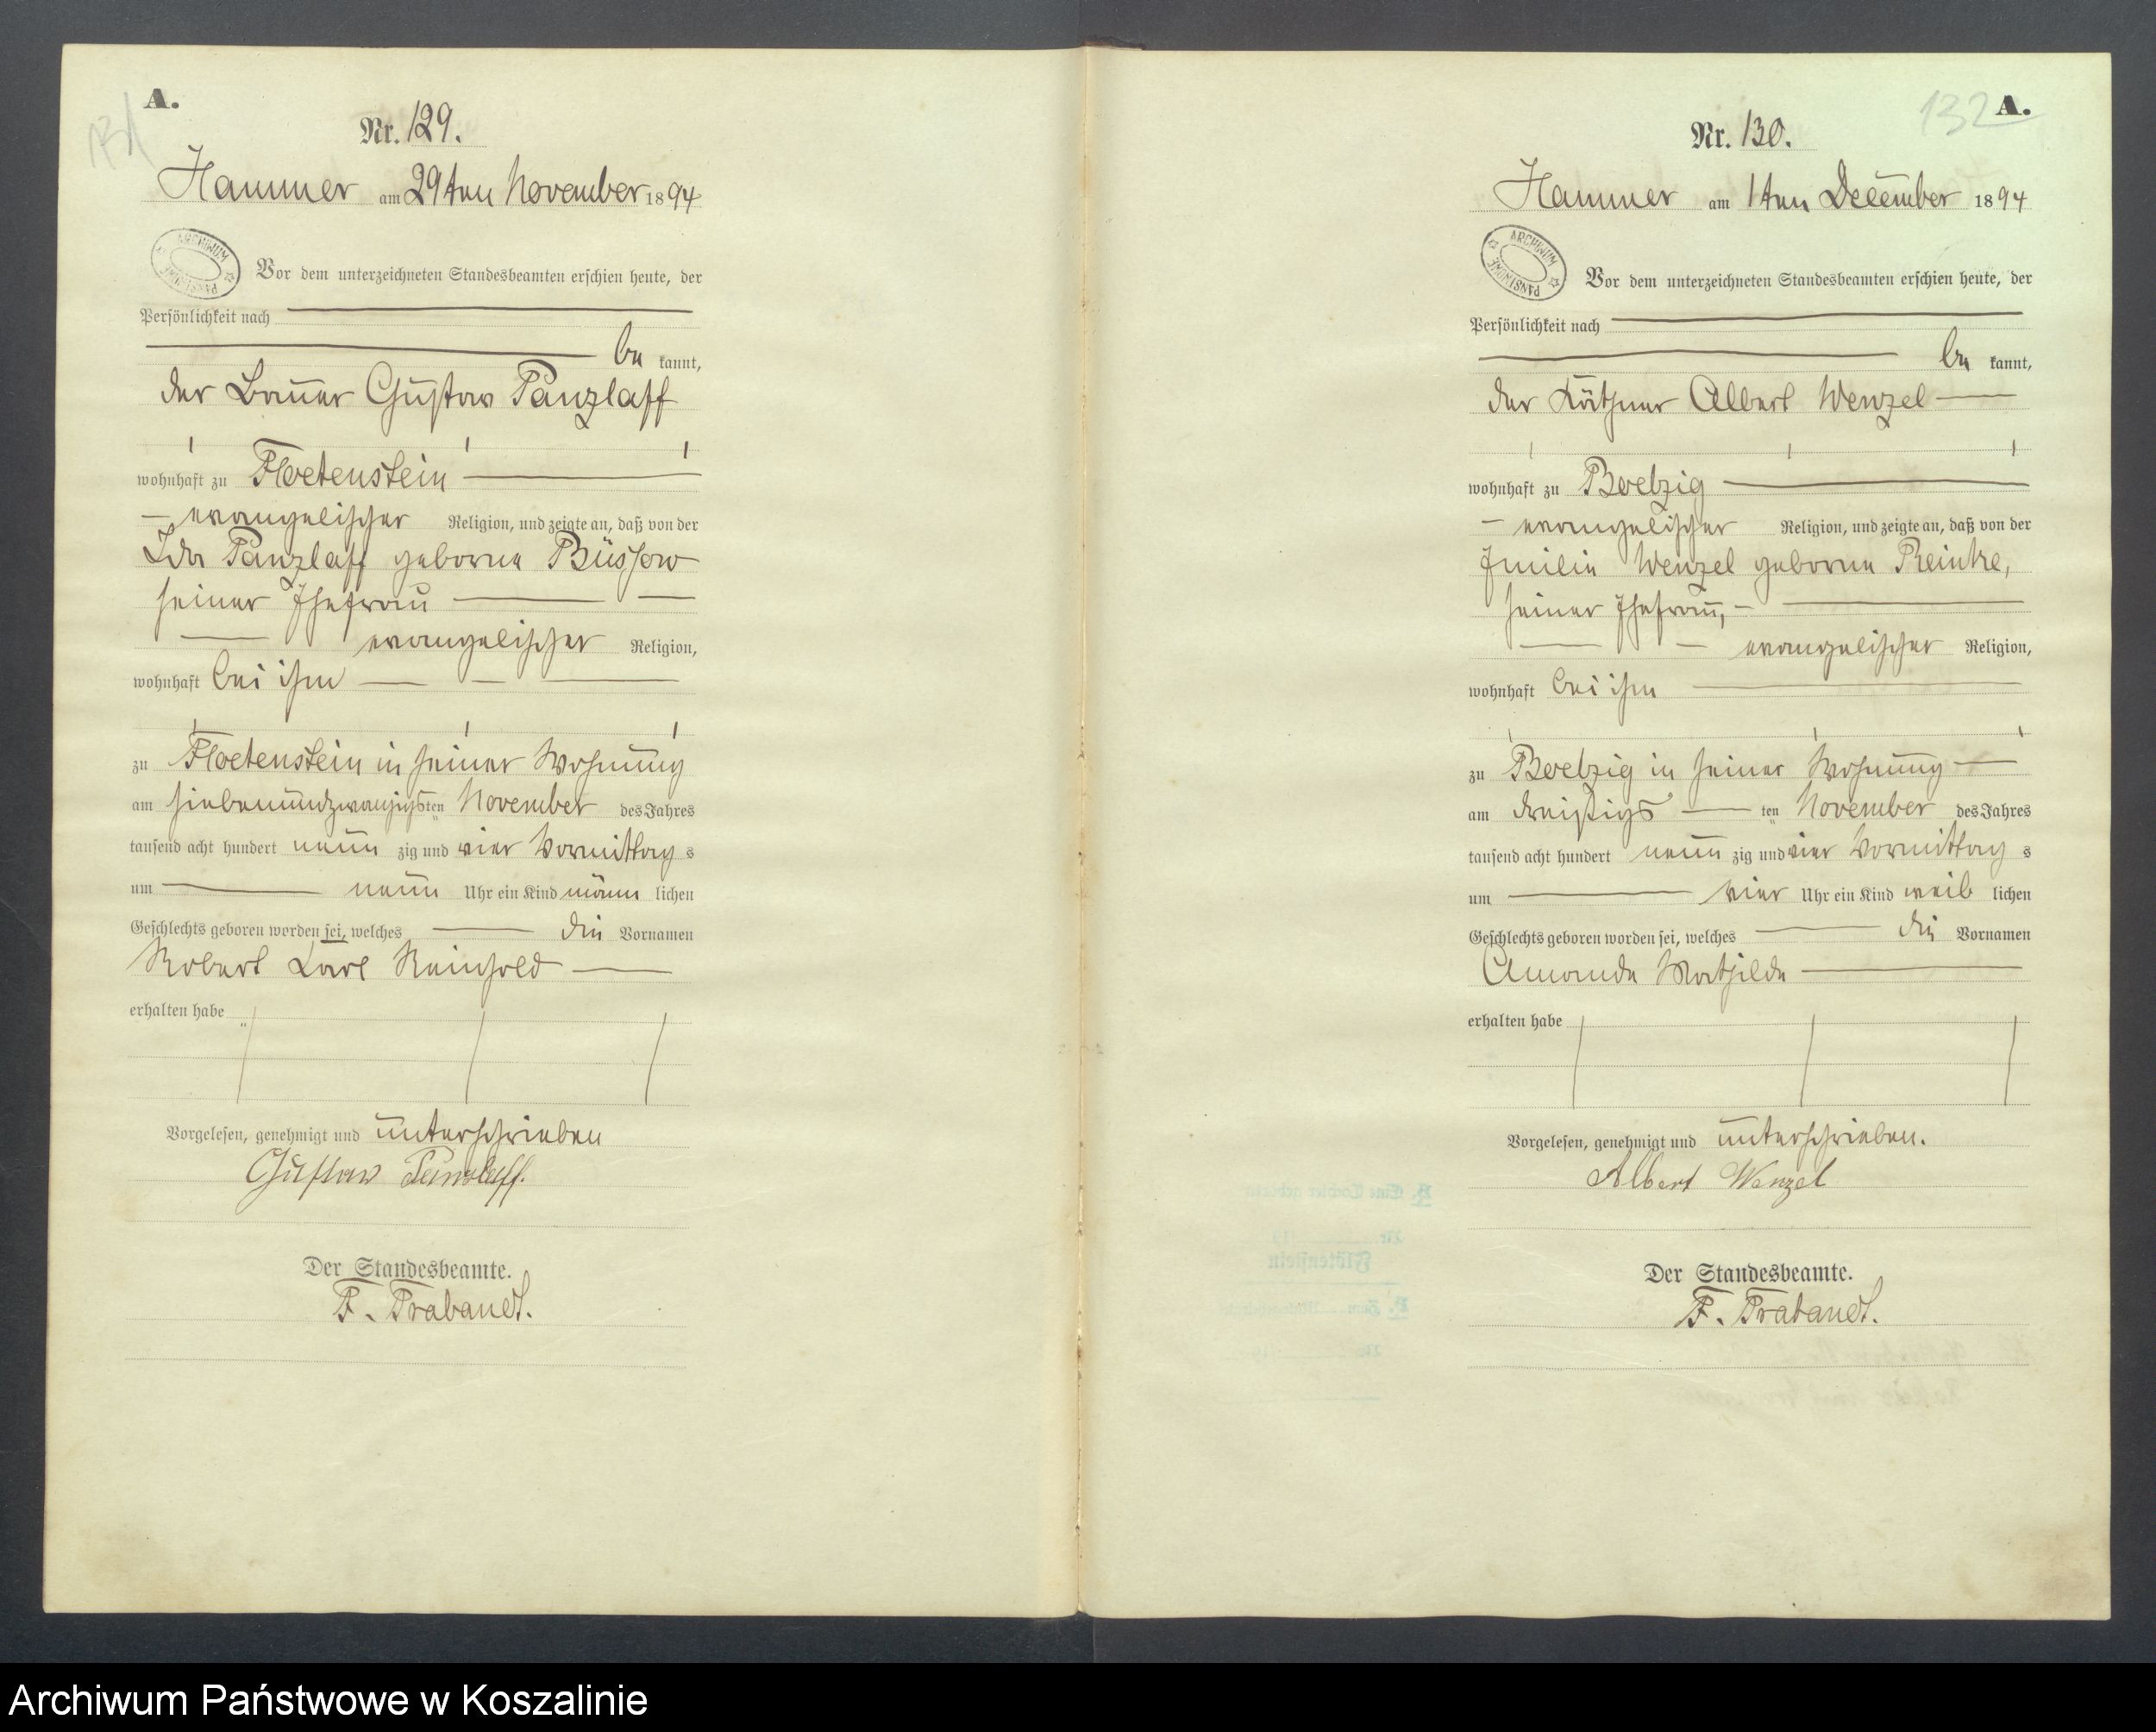 A.
131
Nr. 129.
Hammer am 29ten November 1894
ARCHIWUM PAŃSTWOWE
Vor dem unterzeichneten Standesbeamten erschien heute, der
Persönlichkeit nach
be kannt,
der Bauer Gustav Panzlaff
wohnhaft zu Floetenstein
evangelischer Religion, und zeigte an, daß von der
Ida Panzlaff geborne Büssow
seiner Ehefrau
evangelischer Religion,
wohnhaft bei ihm
zu Floetenstein in seiner Wohnung
am siebenundzwanzigsten November des Jahres
tausend acht hundert neun zig und vier Vormittag s
um neun Uhr ein Kind männ lichen
Geschlechts geboren worden sei, welches die Vornamen
Robert Karl Reinhold
erhalten habe
Vorgelesen, genehmigt und unterschrieben
Gustav Panzlaff.
Der Standesbeamte.
F. Trabandt.
132 A.
Nr. 130.
Hammer am 1ten December 1894
ARCHIWUM PAŃSTWOWE
Vor dem unterzeichneten Standesbeamten erschien heute, der
Persönlichkeit nach
be kannt,
der Käthner Albert Wenzel
wohnhaft zu Boelzig
evangelischer Religion, und zeigte an, daß von der
Emilie Wenzel geborne Reinke,
seiner Ehefrau,
evangelischer Religion,
wohnhaft bei ihm
zu Boelzig in seiner Wohnung
am dreißigs ten November des Jahres
tausend acht hundert neun zig und vier Vormittag s
um vier Uhr ein Kind weib lichen
Geschlechts geboren worden sei, welches die Vornamen
Amanda Mathilde
erhalten habe
Vorgelesen, genehmigt und unterschrieben.
Albert Wenzel
Der Standesbeamte.
F. Trabandt.
Archiwum Państwowe w Koszalinie